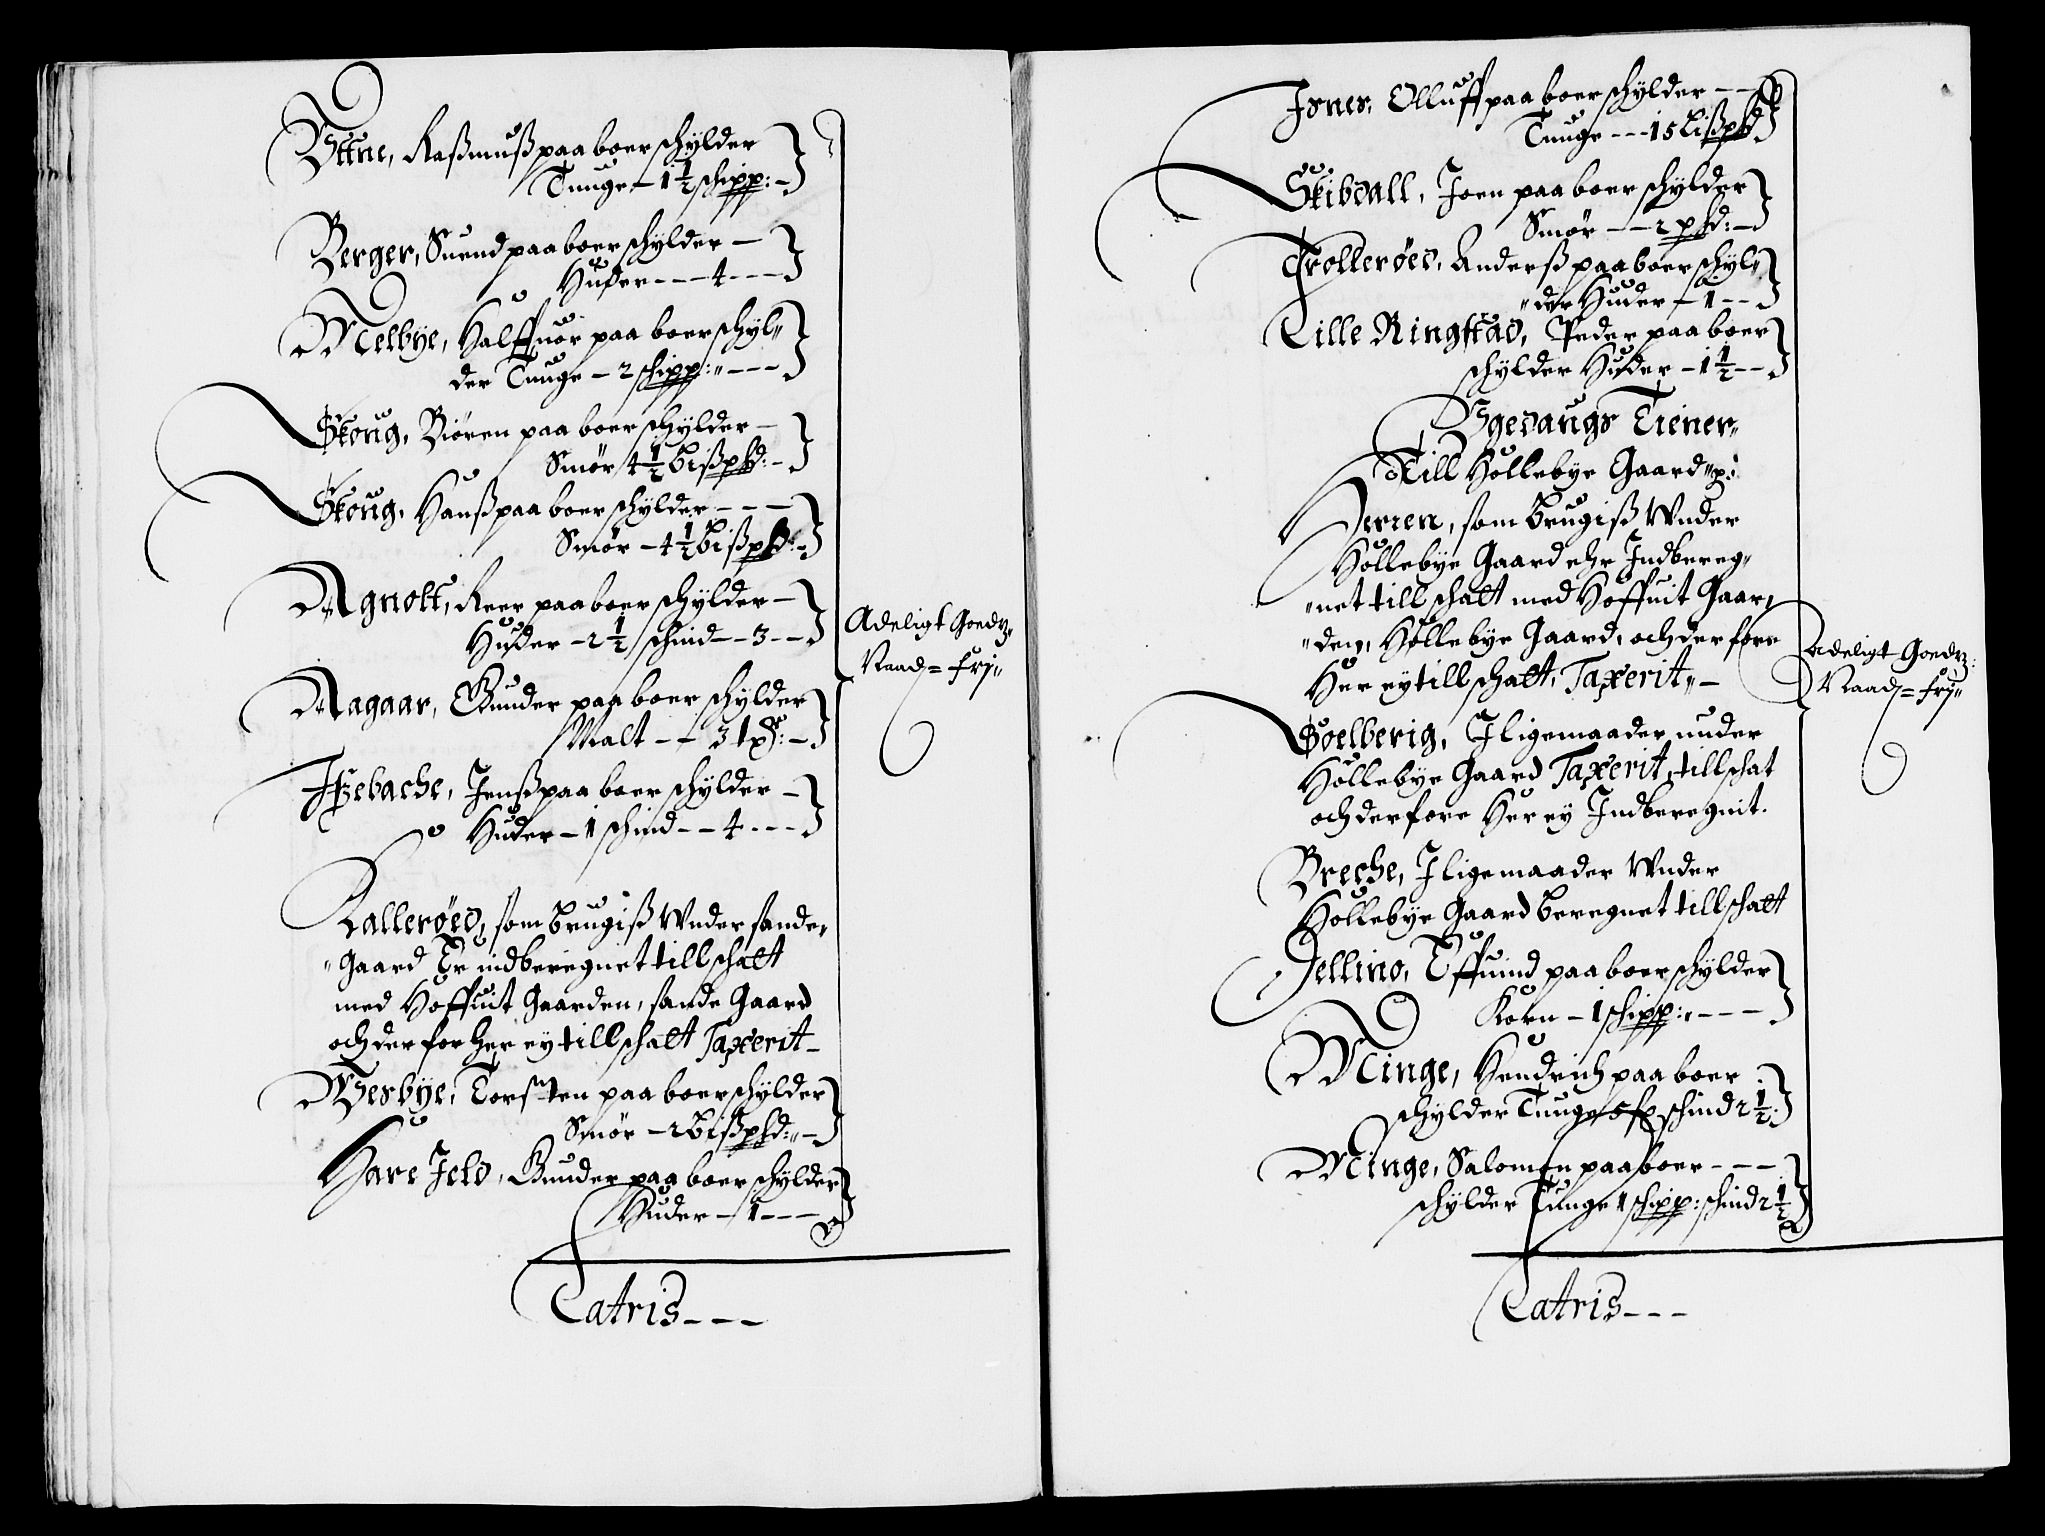 Øttne, Raßmuß paa boer schylder
Tunge - 1 1/2 schipp: -
Berger, Suend paa boer schylder -
Huder - - - 4 - - -
Melbye, Halffuor paa boer schyl„
der Tunge - 2 schipp:„ - - -
Skoug, Biøren paa boer schylder -
Smør 4 1/2 Bißpd: -
Skoug, Hanß paa boer schylder - - -
Smør - 4 1/2 Bißpd: -
Agnolt, Reer paa boer schylder -
Huder - 2 1/2 schind - - 3 - -
Aagaar, Gunder paa boer schylder
Malt - - 3 : -
Jenß paa boer schylder -
Huder - 1 schind - - 4 - - -
Kallerøed, som Brugiß Wnder sande„
„Gaard Er indberegnet till schatt
med Hoffuit Gaarden, sande Gaard
och der for her ey till schatt Taxerit -
Wesbye, Torsten paa boer schylder
Smør - 2 Bißpd:„ -
Hare Jeld, Gunder paa boer schylder
Huder - 1 - - -
Latris - - -
Adeligt Goedz„
Naad = frj„
Isnes, Olluff paa boer schylder - -
Tunge - - - 15 Lißpd
Skibdall, Joen paa boer schylder
Smør - - 2 pd: -
Trollerøed, Anderß paa boer schyl„
„der Huder - 1 - -
Lille Ringstad, Peder paa boer
schylder Huder - 1 1/2 - -
Øgedaugs Tiener„
Till Hollebye Gaard„
som Brugiß Wnder
Hollebye Gaard ehr Indbereg„
„net till schatt med Hoffuit Gaar„
„den, Hollebye Gaard, och der fore
Her ey till schatt, Taxerit„ -
Soelberig, J ligemaader under
Hollebye Gaard Taxerit till schat
och der fore Her ey Indberegnit.
Breche, J ligemaader Wnder
Hollebye Gaard Beregnet till schatt
Jellino, Effuind paa boer schylder
Korn - 1 schipp:„ - - -
Minge, Hendrich paa boer
schylder Tunge schind 2 1/2:
Minge, Salomon paa boer - - -
schylder Tunge 1 schipp: schind 2 1/2
Latris - - -
Adeligt Goedz:
Naad = frj„